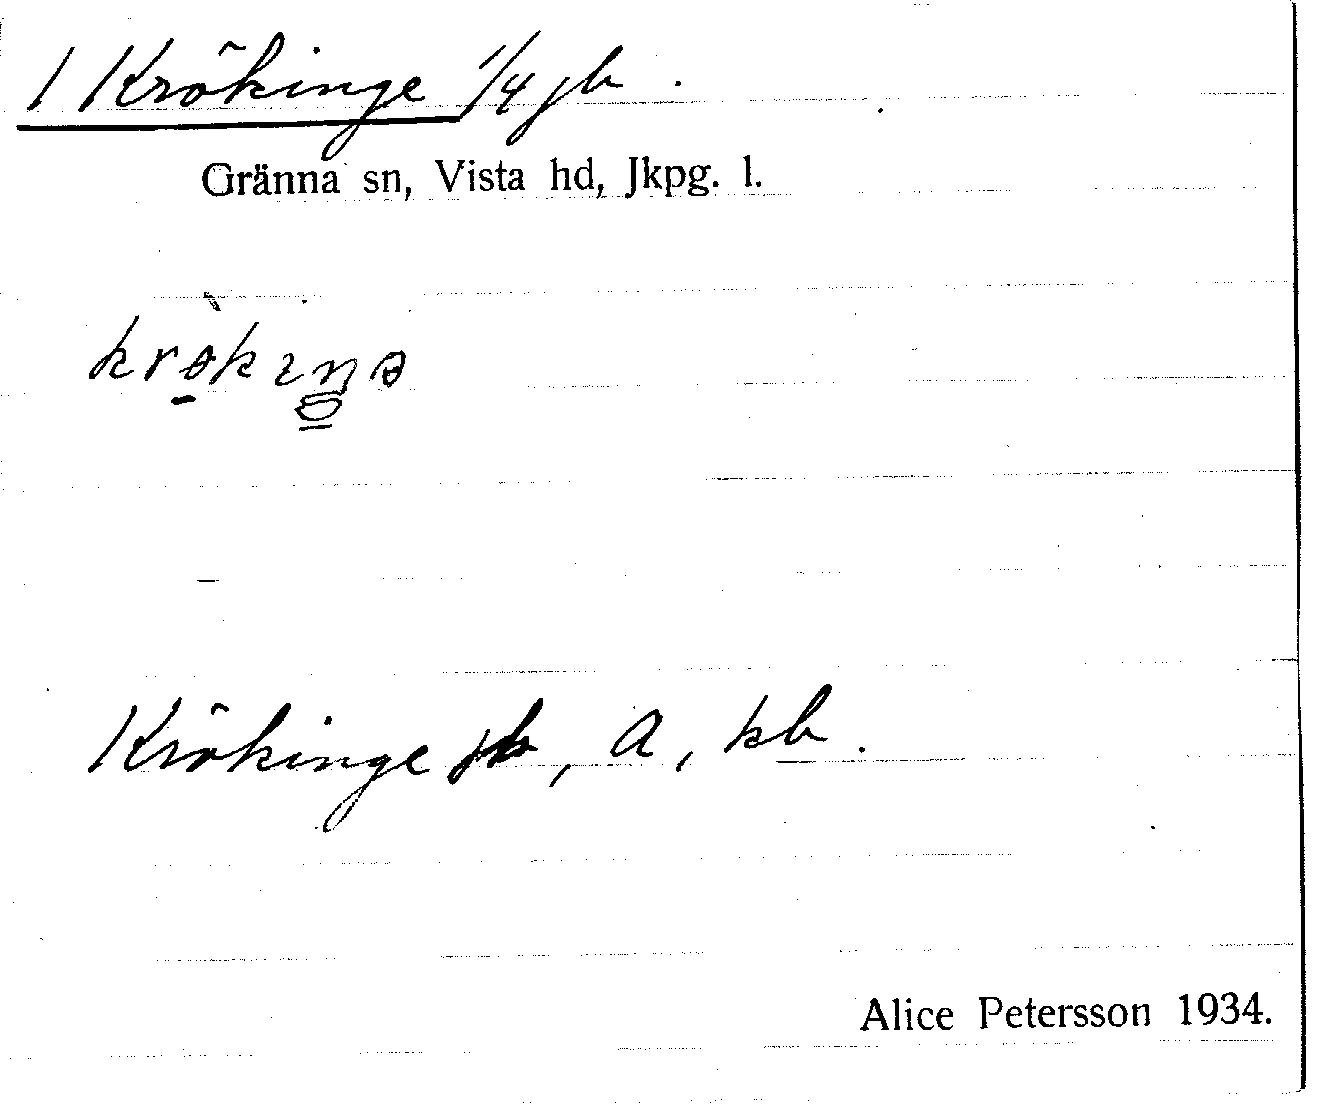 1 Krökinge 1/4 jb.
Gränna sn, Vista hd, Jkpg. l.
krɵ̀kıŋə
Krökinge jb, a, kb.
Alice Petersson 1934.